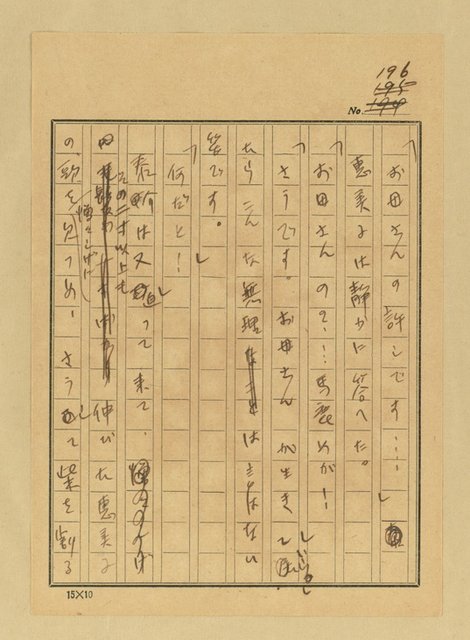 196
195
194
No.
「お母さんの許しです……」
恵美子は静かに答へた。
「お母さんの……馬鹿めが!
「さうです。お母さんが生きて
いらし
たらこんな無理なことは言はない
筈です。」
「何だと!」
は又って来て、
その二寸以上も
伸びた恵美子
憎さげに
の頭を見つめ、さうして柴を割る
15×10